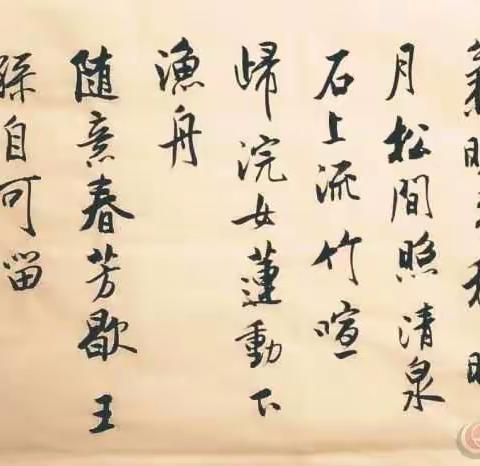 氣晚来秋明
月松間照清泉
石上流竹喧
歸浣女蓮動下
漁舟
随意春芳歇王
孫自可留